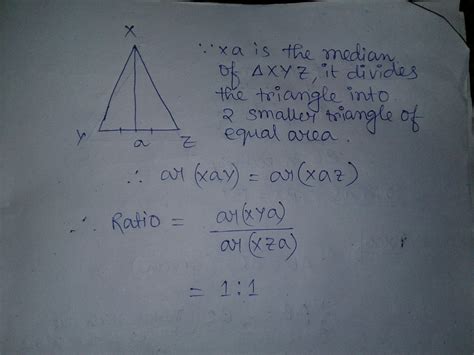 X
Y a Z
∵ xa is the median
of △XYZ, it divides
the triangle into
2 smaller triangle of
equal area.
∴ ar(xaY) = ar(xaz)
∴ Ratio = ar(xYa)
ar(xza)
= 1:1